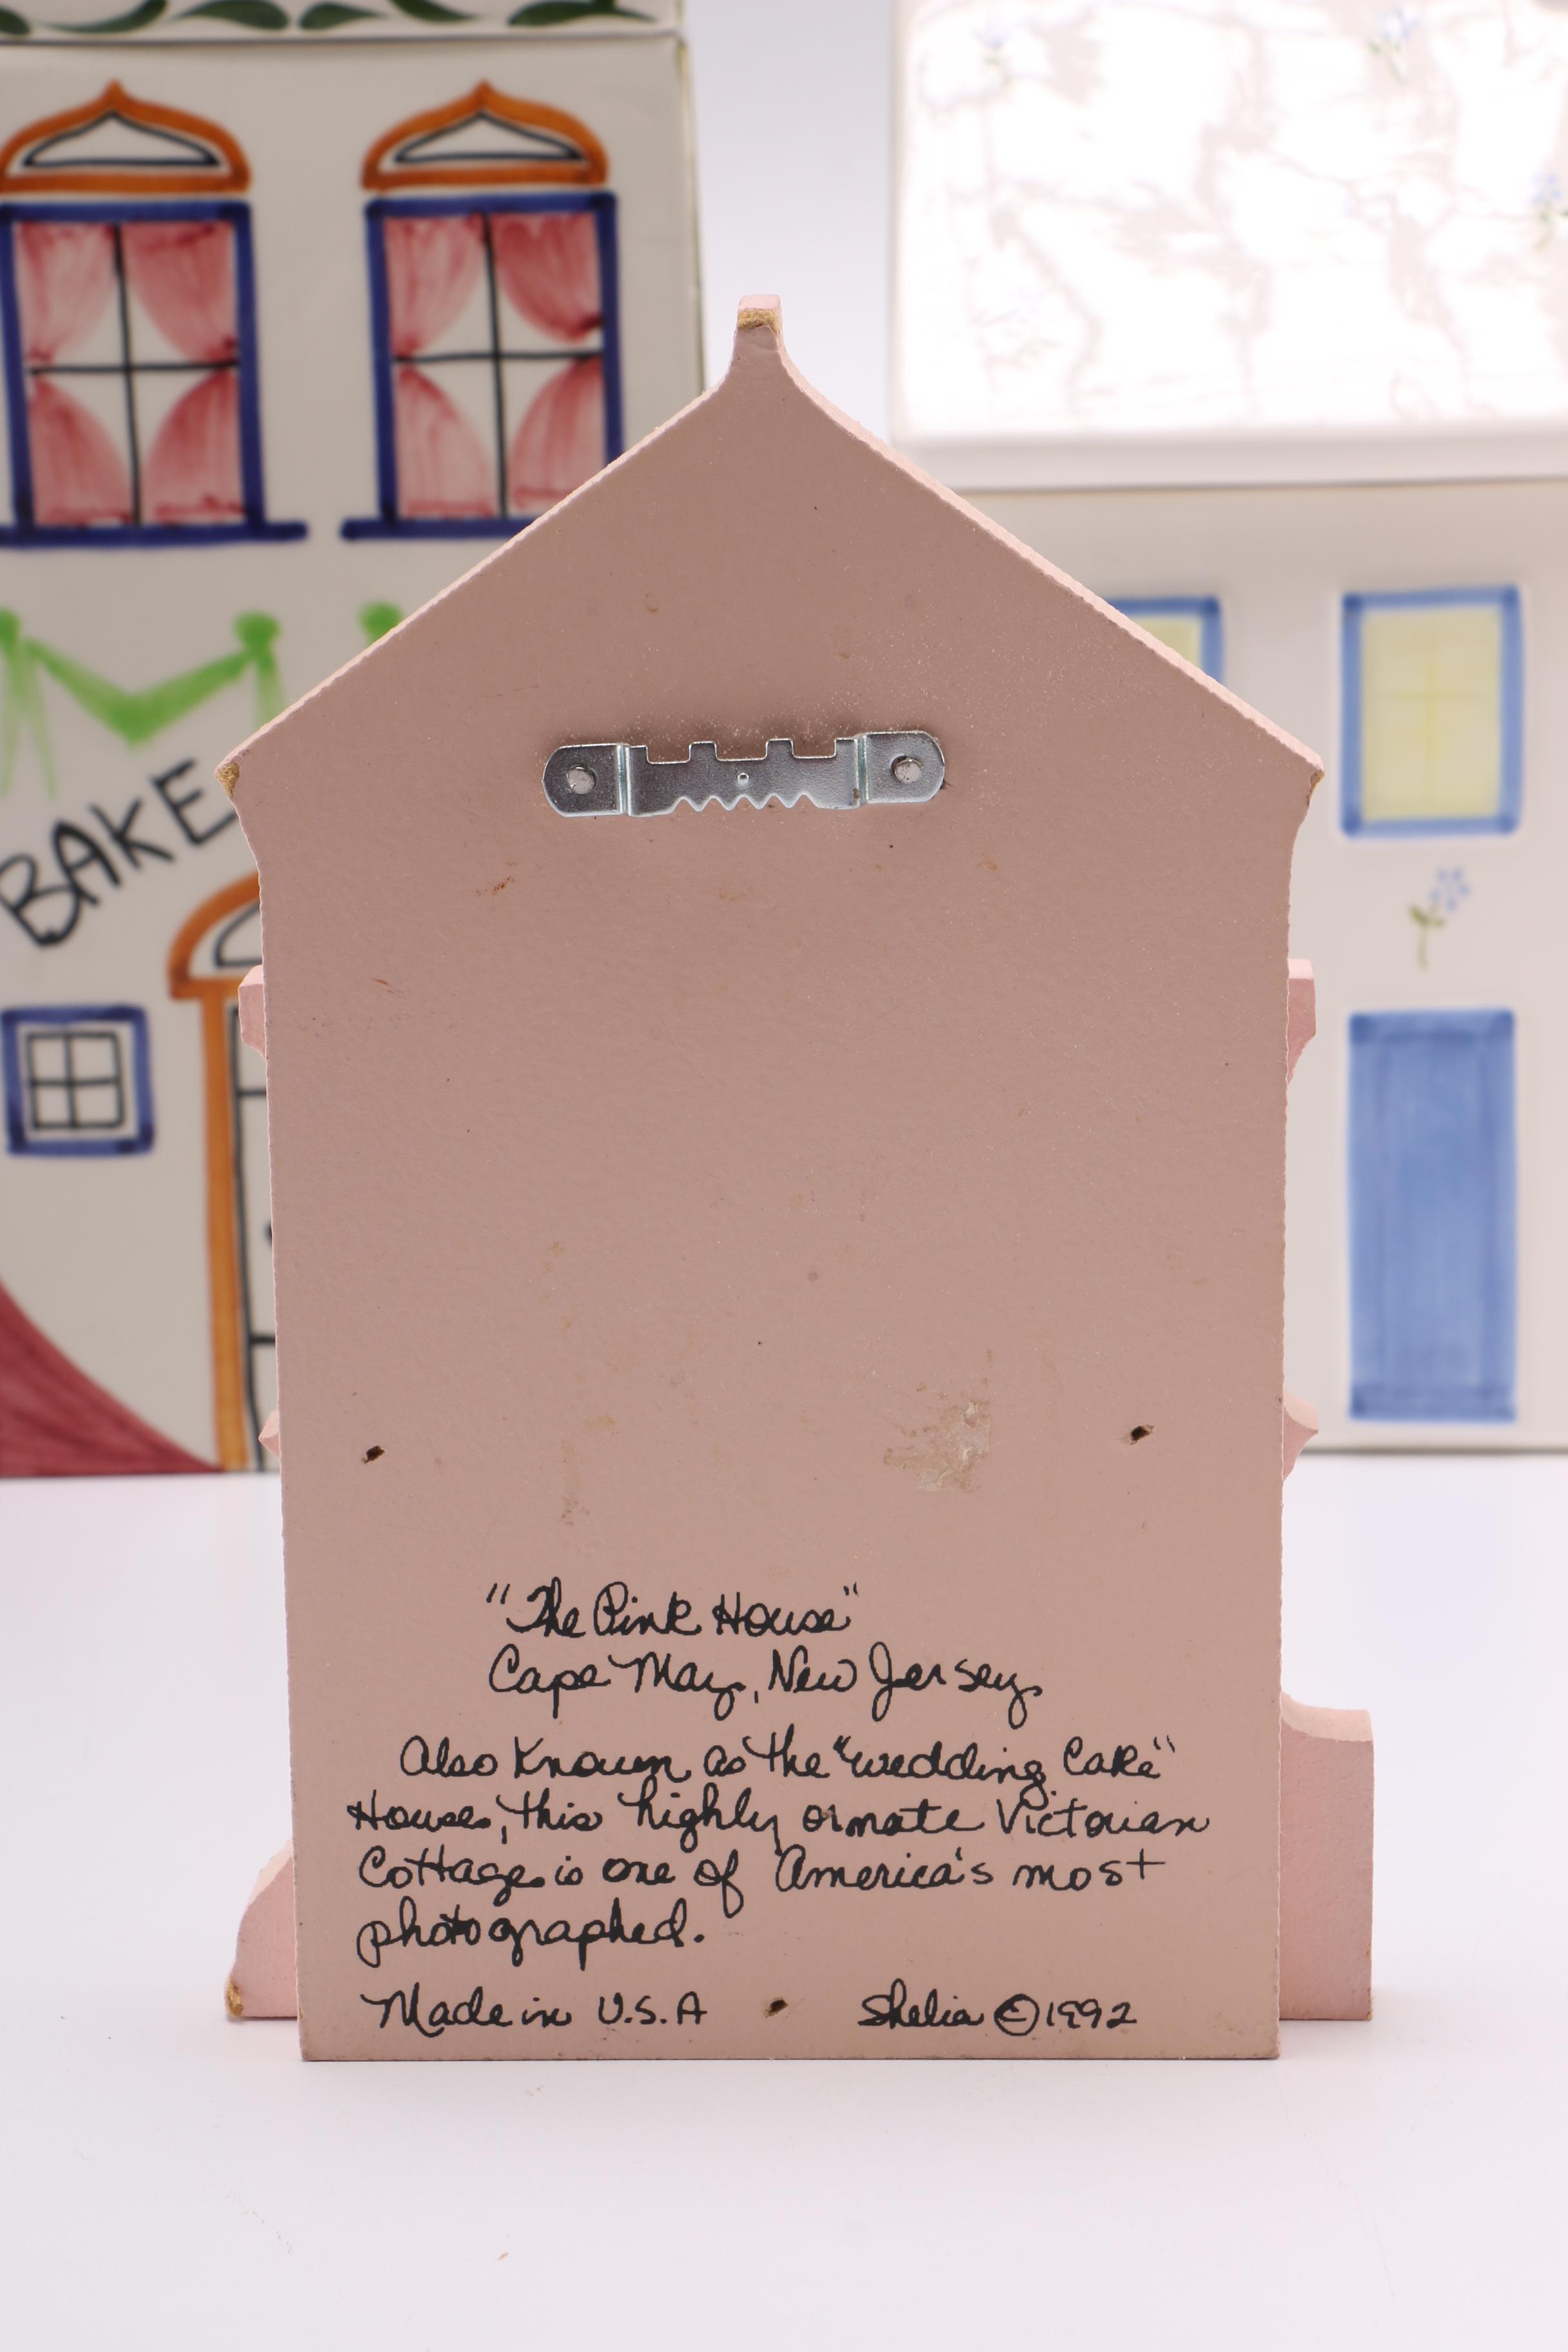 BAKE
"The Pink House"
Cape May, New Jersey
Also Known as the "wedding Cake"
House, this highly ornate Victorian
Cottage is one of America's most
photographed.
Made in U.S.A
Shelia © 1992